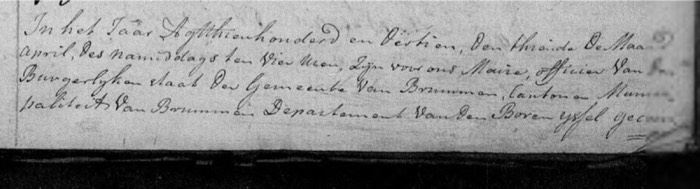 In het Jaar Agtthienhonderd en Dertien, Den thiende De Maand
april, Des namiddags ten vier uren, Zijn voor ons Maire, officier Van
Burgerlyken staat Der Gemeente Van Brummen, Canton en Muni
paliteit Van Brummen Departement Van Den Boven yssel gec